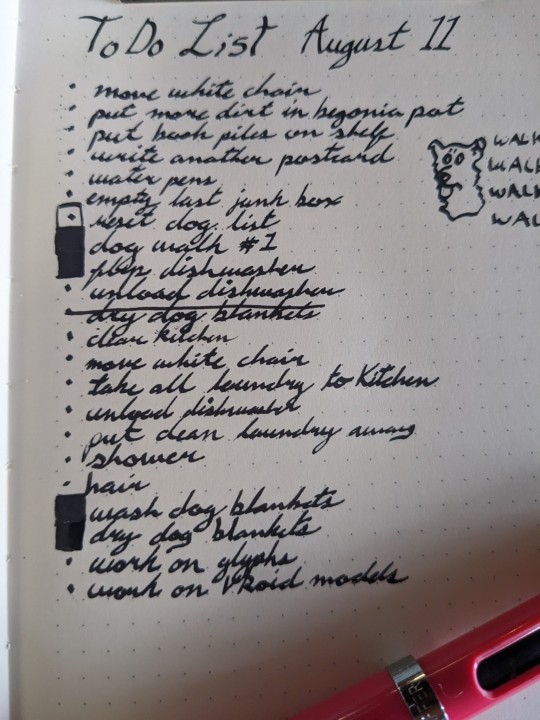 To Do List August 11
• move white chair
• put more dirt in begonia pot
• put book piles on shelf
• write another postcard
• water pens
• empty last junk box
• reset dog list
dog walk #1
prep dishwasher
• unload dishwasher
dry dog blankets
• clear kitchen
• move white chair
• take all laundry to kitchen
• unload dishwasher
• put clean laundry away
• shower
• hair
wash dog blankets
dry dog blankets
• work on glyphs
• work on VRoid models
WALK
WALK
WALK
WAL